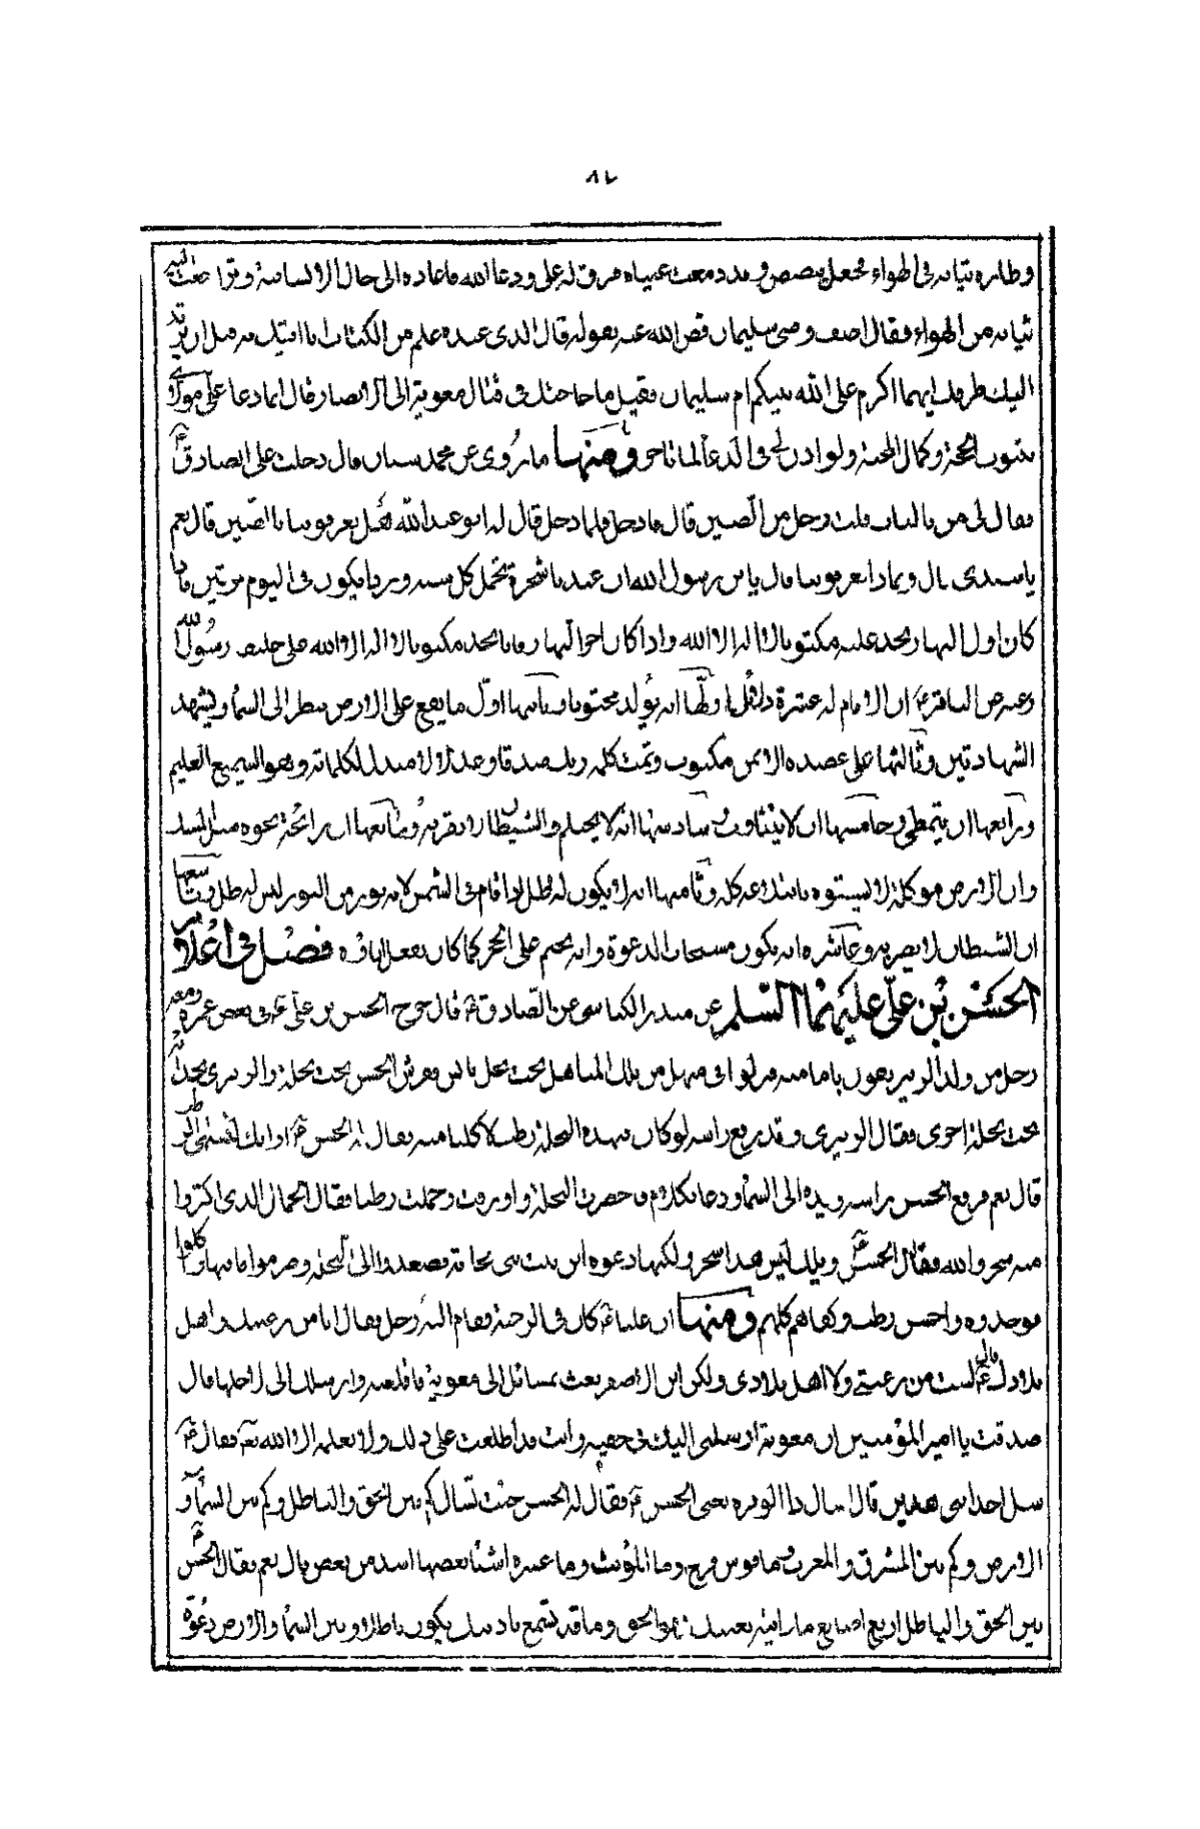 ٨٧
وطاره ثيابه في الهواء فجعل يبصبص و قد دمعت عيناه فرق له علي ودعا الله فاعاده الى حال الانسانية وتراجعت اليه
ثيابه من الهواء فقال اصف وصي سليمان قص الله عنه بقوله قال الذي عنده علم من الكتاب انا اتيك به قبل ان يرتد
اليك طرفك ايهما اكرم على الله نبيكم ام سليمان فقيل ما حاجتك في قتال معوية الى الانصار قال انما ادعوا على هؤلاء
بثبوت الحجة وكمال المحنة ولو اذن لي في الدعا لما تاخر ومنها ما روي عن محمد سنان قال دخلت على الصادق ع
فقال لي من بالباب قلت رجل من الصين قال فادخل فلما دخل قال له ابو عبد الله هل تعرفونا بالصين قال نعم
يا سيدي قال وبماذا تعرفونا قال يا بن رسول الله ان عندنا شجرة تحمل كل سنة وردا يكون في اليوم مرتين فاذا
كان اول النهار نجد عليه مكتوبا لا اله الا الله واذا كان اخر النهار فانا نجد مكتوبا لا اله الا الله علي خليفة رسول الله
وعن الباقر ع ان للامام له عشرة دلائل اولها انه يولد مختونا وثانيها اول ما يقع على الارض ينظر الى السماء ويشهد
الشهادتين وثالثها على عضده الايمن مكتوب وتمت كلمة ربك صدقا وعدلا لا مبدل لكلماته وهو السميع العليم
ورابعها ان لا يتمطى وخامسها ان لا يتثاوب وسادسها انه لا يحتلم والشيطان لا يقربه وسابعها ان رائحة نجوه مثل المسك
وان الارض موكلة لا بستره بابتلاعه كله وثامنها انه لا يكون له ظل اذا قام في الشمس لانه نور من النور ليس له ظل وتاسعها
ان الشيطان لا يضربه وعاشره انه يكون مستجاب الدعوة وانه يختم على الحجر كما كان يفعل اباؤه فصل في اعلام
الحسن بن علي عليهما السلم عن مندر الكناسي عن الصادق ع قال خرج الحسن بن علي ع في بعض عمره ومعه
رجل من ولد الزبير يقول بامامته فنزلوا في منهل من تلك المناهل تحت نخل يابس ففرش للحسن تحت نخلة وللزبيري بحذائه
تحت نخلة اخرى فقال الزبيري وقد رفع راسه لو كان بهذه النخلة رطب لاكلنا منه فقال له الحسن ع اوانك لتشتهي الرطب
قال نعم فرفع الحسن راسه ويده الى السماء ودعا بكلام فاخضرت النخلة واورقت وحملت رطبا فقال الجمال الذي اكتروا
منه سحر والله فقال الحسن ع ويلك ليس هذا سحر ولكنها دعوة ابن بنت نبي مجابة فصعدوا الى النخلة وصرموا ما فيها وكلوا
فوجدوه واحسن رطب وكفاهم كلهم ومنها ان عليا ع كان في الرحبة فقام اليه رجل فقال انا من رعيتك واهل
بلادك قال ع لست من رعيتي ولا اهل بلادي ولكن ابن الاصفر بعث بمسائل الى معوية فاقلقه وارسلك الى لاجلها قال
صدقت يا امير المؤمنين ان معوية ارسلني اليك في خفية وانت قد اطلعت على ذلك ولا يعلمه الا الله تع فقال ع
سل احد ابني هذين قال اسال ذا الوفرة يعني الحسن ع فقال له الحسن جئت تسال كم بين الحق والباطل وكم بين السماء و
الارض وكم بين المشرق والمغرب وما قوس قزح وما المؤنث وما عشرة اشياء بعضها اشد من بعض قال نعم فقال الحسن ع
بين الحق والباطل اربع اصابع ما رايته بعينك فهو الحق وما قد تسمع باذنيك يكون باطلا وبين السماء والارض دعوة